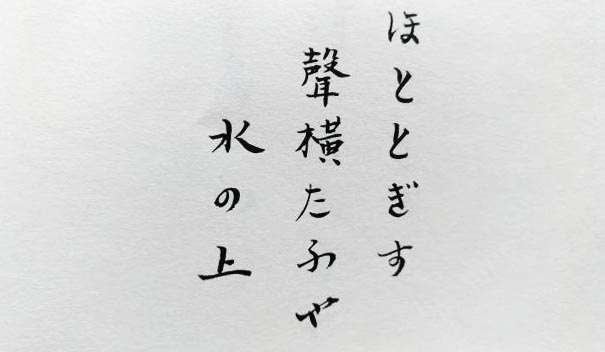 ほととぎす
聲横たふや
水の上